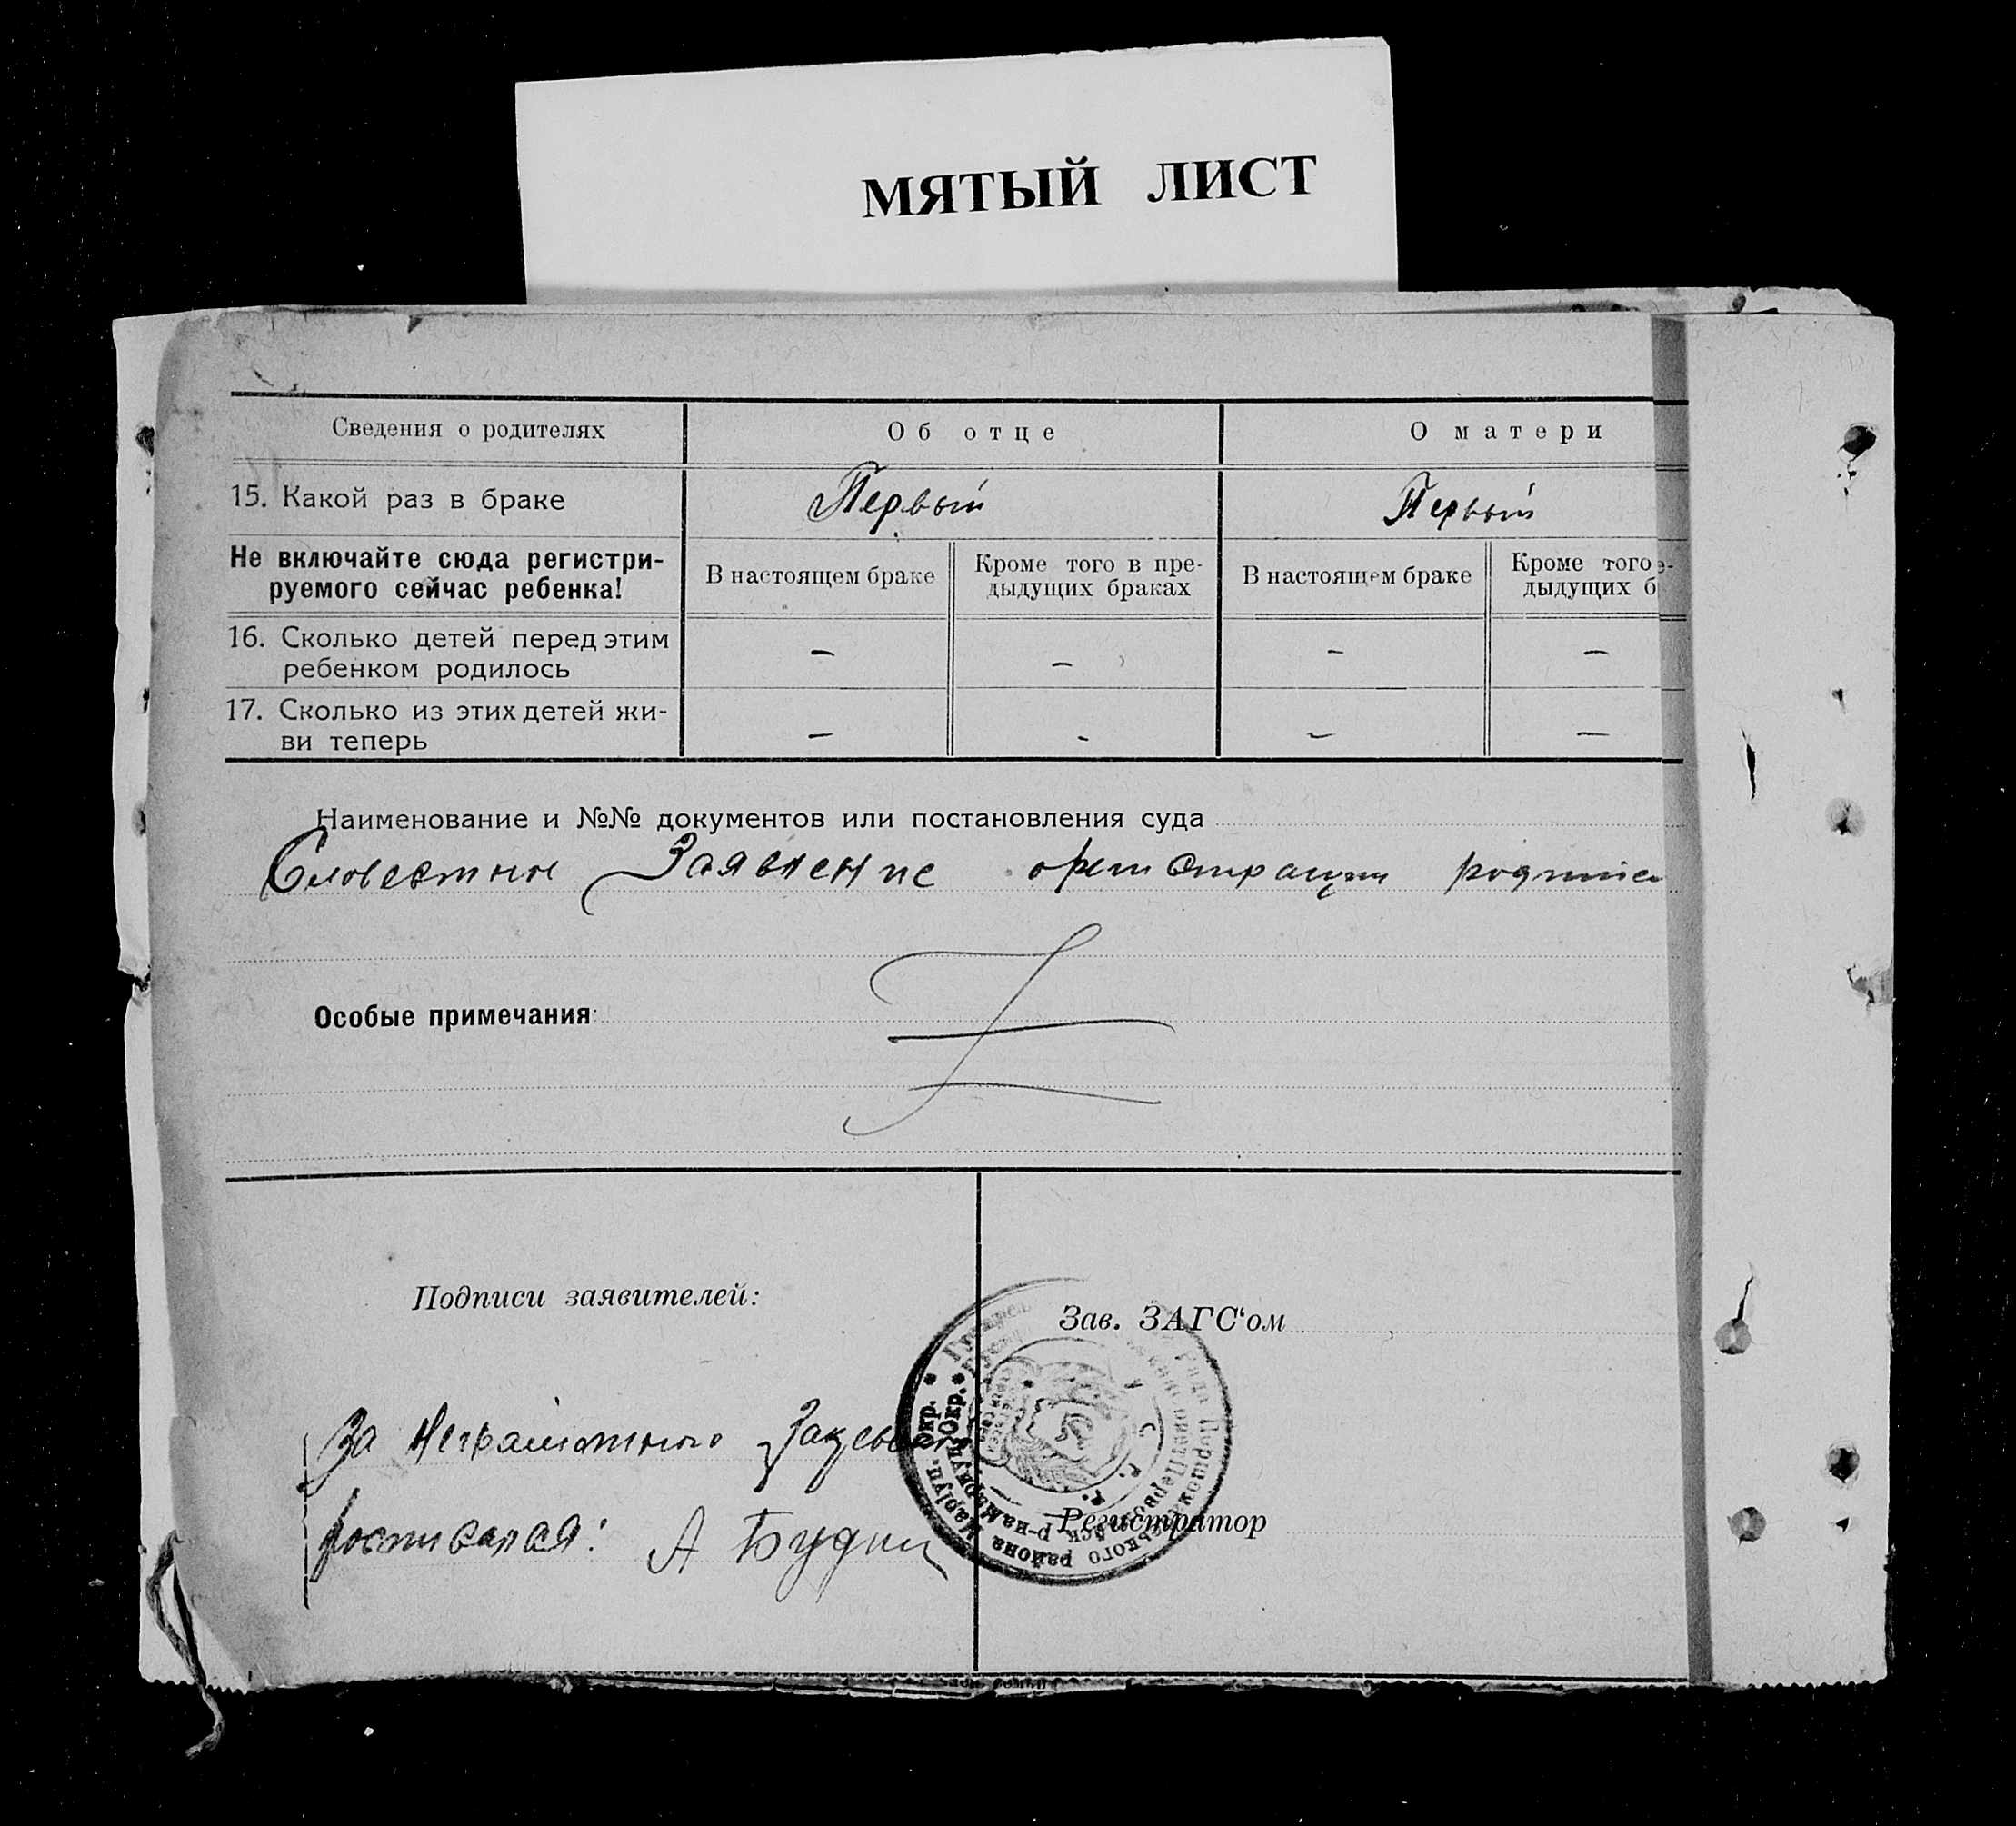 МЯТЫЙ ЛИСТ
Сведения о родителях
Об отце
О матери
15. Какой раз в браке
Первый
Первый
Не включайте сюда регистри-
руемого сейчас ребенка!
В настоящем браке
Кроме того в пре-
дыдущих браках
В настоящем браке
Кроме того
дыдущих б
16. Сколько детей перед этим
ребенком родилось
—
—
—
—
17. Сколько из этих детей жи-
ви теперь
—
-
—
—
Наименование и №№ документов или постановления суда
Словестное Заявление
Особые примечания:
Подписи заявителей:
За неграмотного
росписался: А
Зав. ЗАГС‘ом
Регистратор
района Маріуп. Окр.